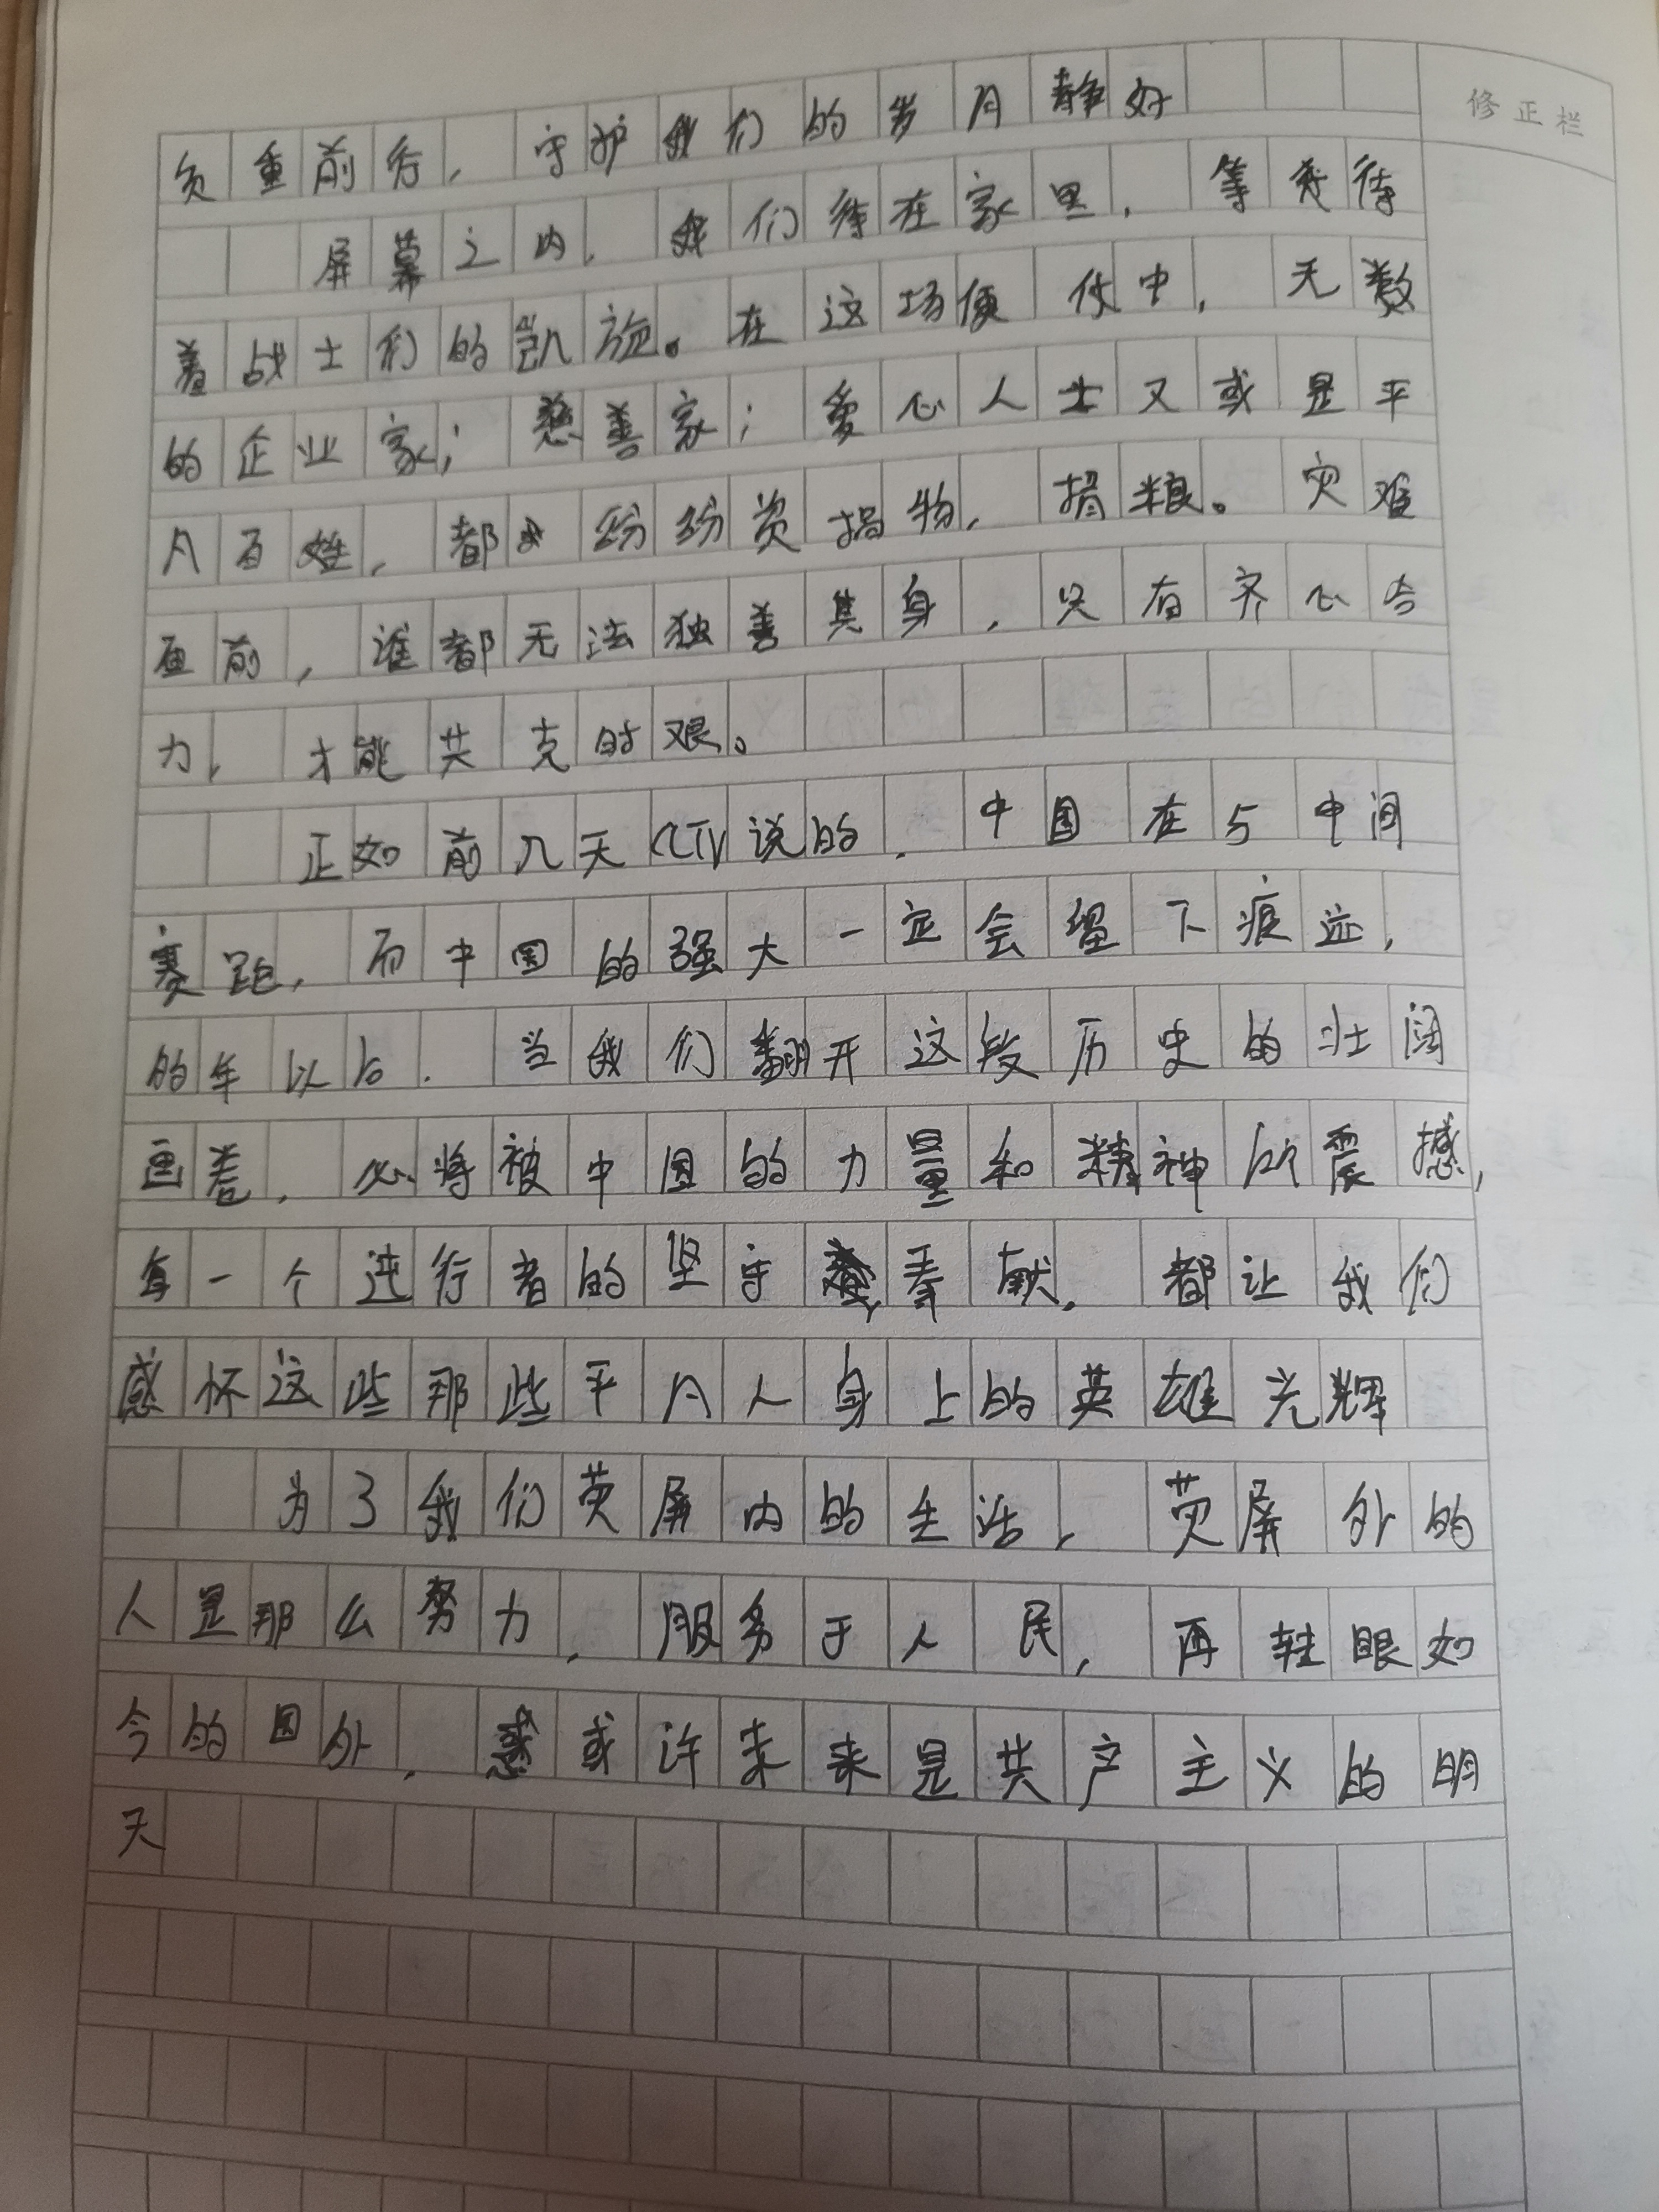 修正栏
负重前行，守护我们的岁月静好
屏幕之内，我们待在家里，等待
着战士们的凯旋。在这场仗中，无数
的企业家；慈善家；爱心人士又或是平
凡百姓，都纷纷资捐物，捐粮。灾难
面前，谁都无法独善其身，只有齐心合
力，才能共克时艰。
正如前几天CCTV说的，中国在与中间
赛跑，而中国的强大一定会留下痕迹，
的年以后．当我们翻开这段历史的壮阔
画卷，必将被中国的力量和精神所震撼，
每一个逆行者的坚守奉献，都让我们
感怀这些那些平凡人身上的英雄光辉
为了我们荧屏内的生活，荧屏外的
人是那么努力，服务于人民，再转眼如
今的国外，或许未来是共产主义的明
天